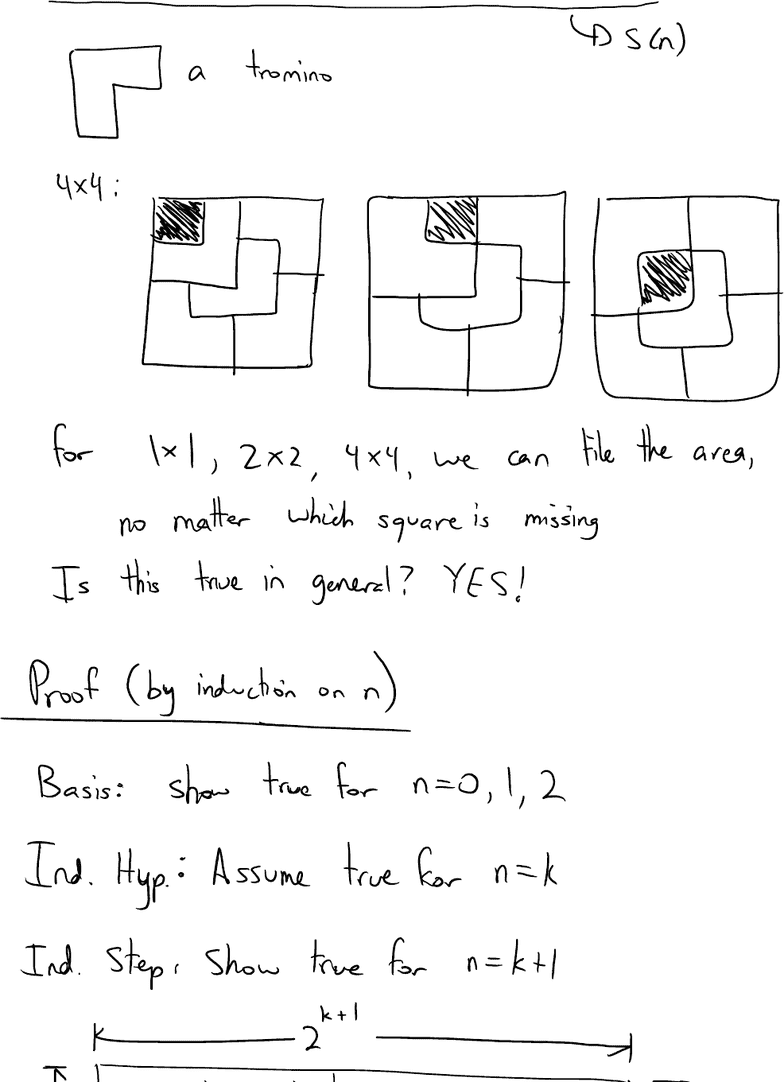 ↳ S(n)
a tromino
4×4:
for 1×1, 2×2, 4×4, we can tile the area,
no matter which square is missing
Is this true in general? YES!
Proof (by induction on n)
Basis: show true for n=0, 1, 2
Ind. Hyp.: Assume true for n=k
Ind. Step: Show true for n=k+1
2^{k+1}